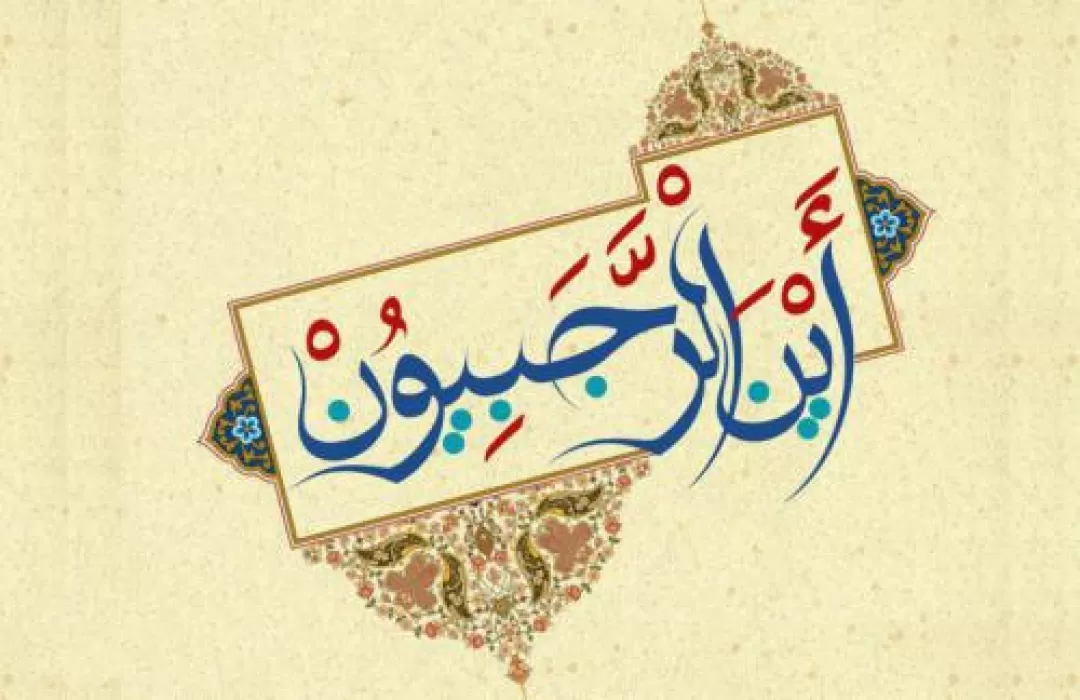 أَيْنَ الْرَّجَبِيُونْ